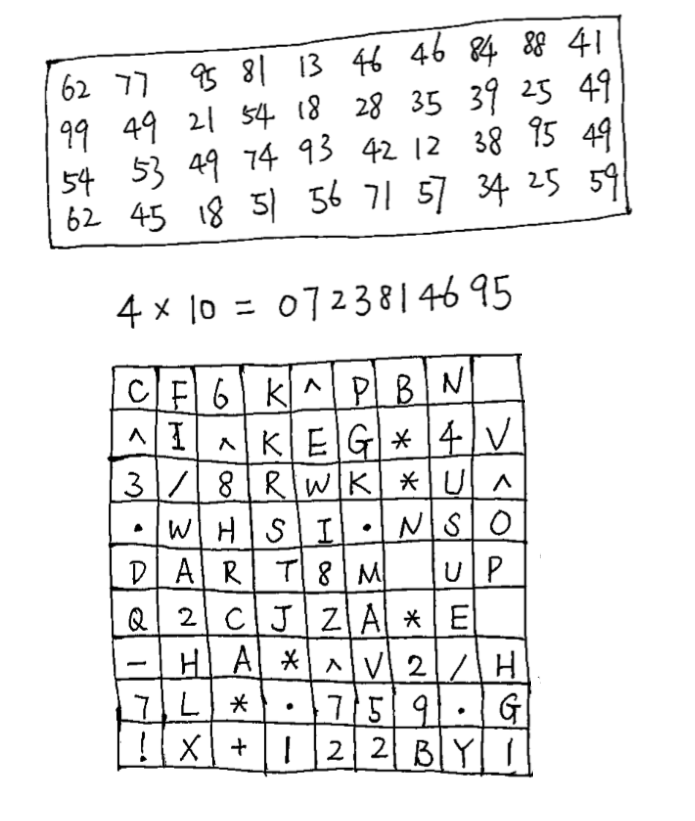 62 77 95 81 13 46 46 84 88 41
99 49 21 54 18 28 35 39 25 49
54 53 49 74 93 42 12 38 95 49
62 45 18 51 56 71 57 34 25 59
4 × 10 = 0723814695
C F 6 K ^ P B N
^ I ^ K E G * 4 V
3 / 8 R W K * U ^
• W H S I • N S O
D A R T 8 M U P
Q 2 C J Z A * E
- H A * ^ V 2 / H
7 L * • 7 5 9 • G
! X + 1 2 2 B Y 1